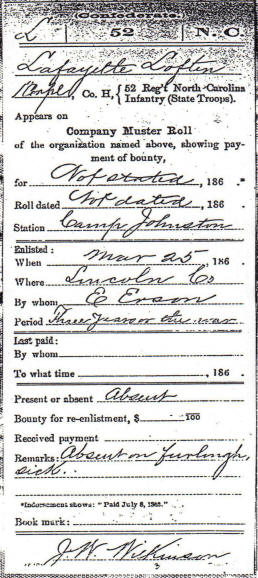 Confederate.
L 52 N.C.
Lafayette Loflin
Co. H, { 52 Reg't North Carolina Infantry (State Troops).
Appears on
Company Muster Roll
of the organization named above, showing pay-
ment of bounty,
for Not stated, 186 .*
Roll dated Not dated, 186 .
Station Camp Johnston
Enlisted:
When Mar 25, 186 .
Where Lincoln Co
By whom E Erson
Period Three years or the war
Last paid:
By whom
To what time , 186 .
Present or absent Absent
Bounty for re-enlistment, $ 100
Received payment
Remarks: Absent on furlough,
sick.
*Indorsement shows: "Paid July 8, 1862."
Book mark:
J. W. Wilkinson